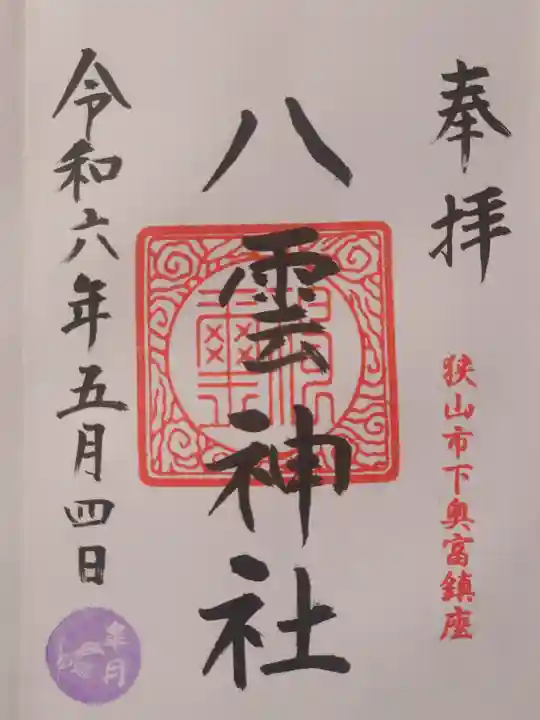 奉拝
狭山市下奥富鎮座
八雲神社
令和六年五月四日
皐月